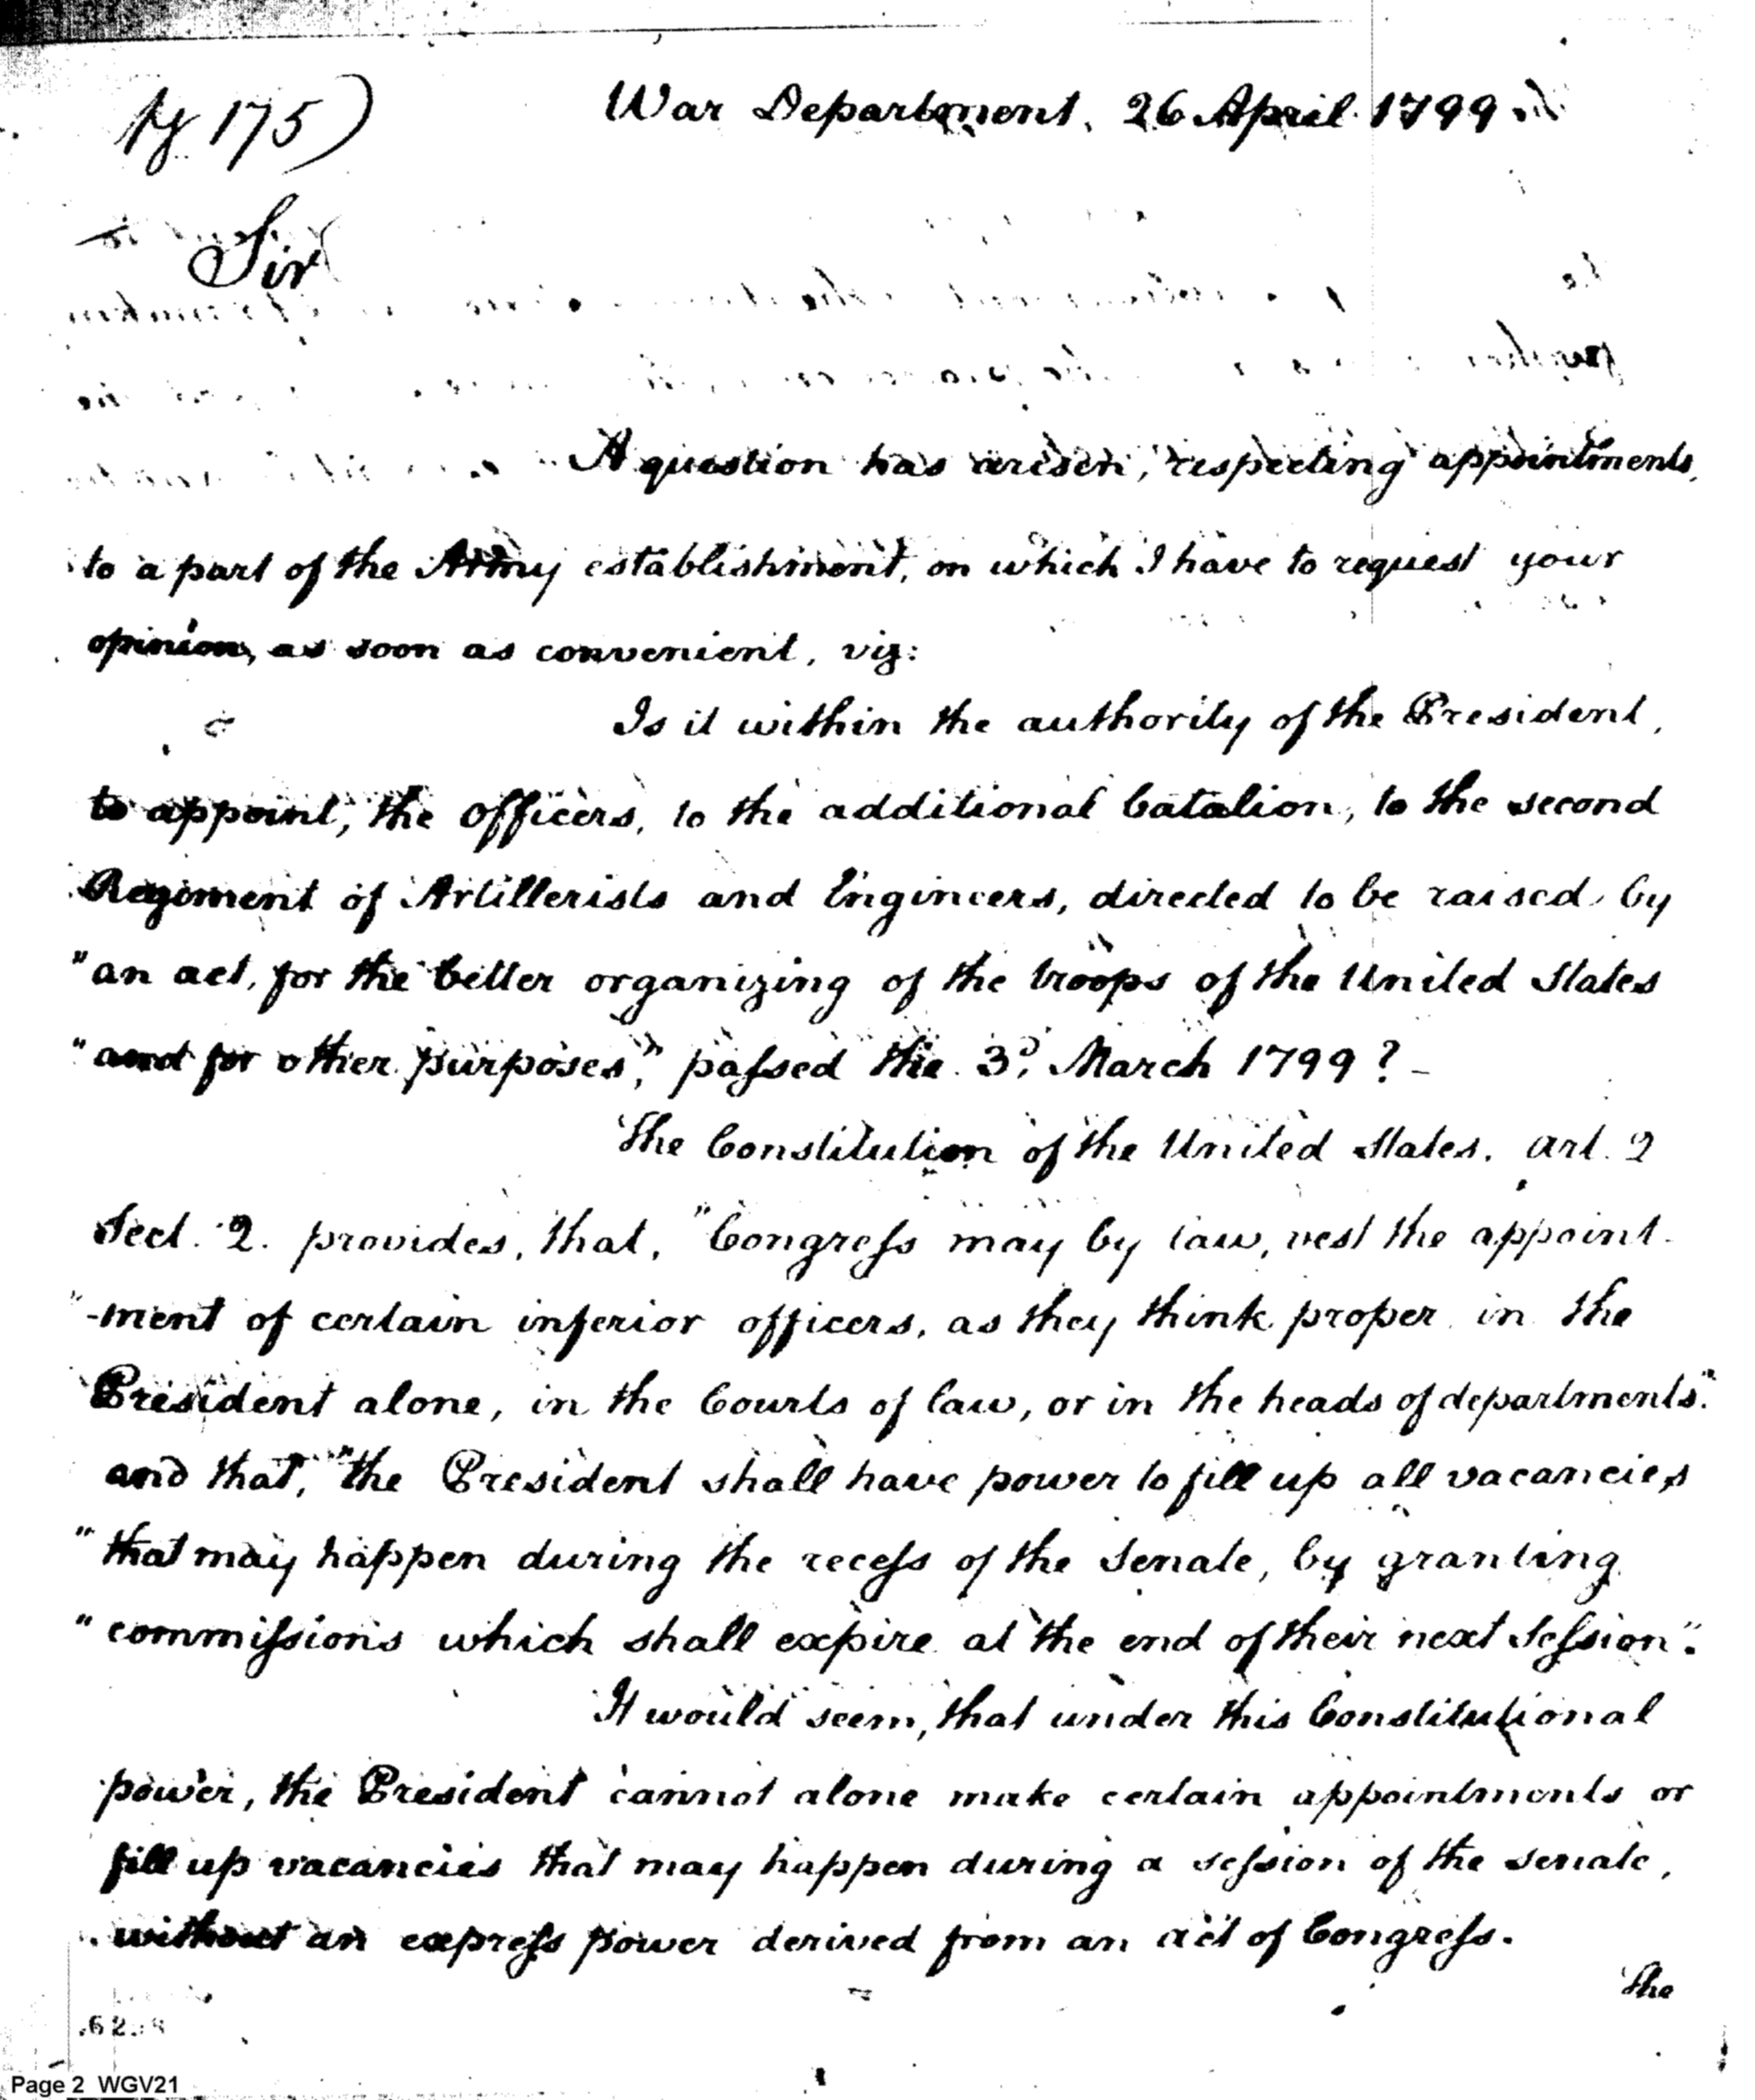 pg 175)
War Department, 26 April 1799.
Sir
A question has arisen, respecting appointments,
to a part of the Army establishment, on which I have to request your
opinion, as soon as convenient, viz:
Is it within the authority of the President,
to appoint, the officers, to the additional batalion, to the second
Regiment of Artillerists and Engineers, directed to be raised by
"an act, for the better organizing of the troops of the United States
"and for other purposes," paſsed the 3d March 1799? -
The Constitution of the United States. art. 2
Sect. 2. provides, that, "Congreſs may by law, vest the appoint-
"-ment of certain inferior officers, as they think proper in the
President alone, in the Courts of law, or in the heads of departments".
and that, "the President shall have power to fill up all vacancies
"that may happen during the receſs of the Senate, by granting
"commiſsions which shall expire at the end of their next Seſsion".
It would seem, that under this Constitutional
power, the President cannot alone make certain appointments or
fill up vacancies that may happen during a seſsion of the senate,
without an expreſs power derived from an act of Congreſs.
The
Page 2 WGV21